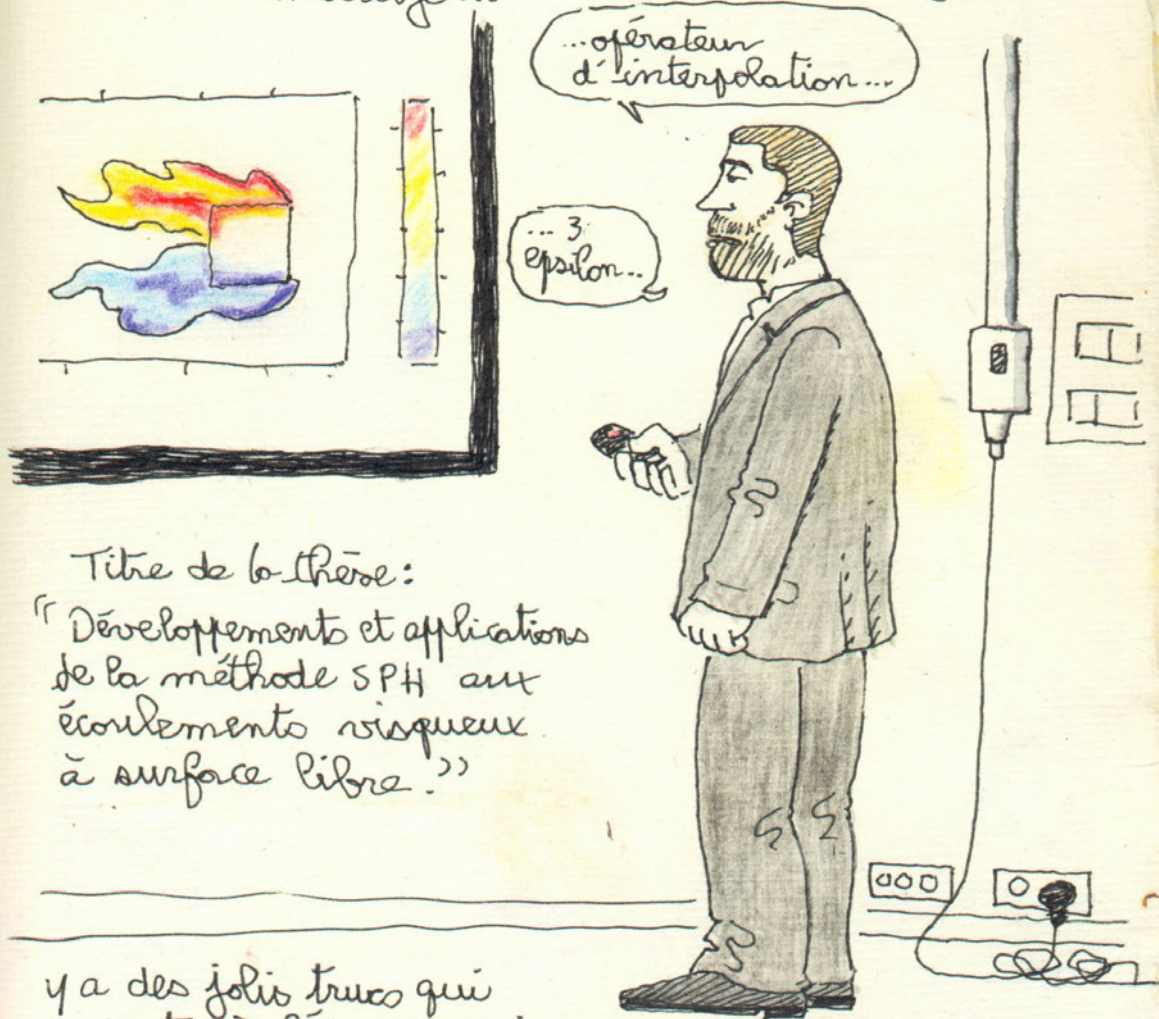 ...opérateur
d'interpolation...
... 3
epsilon...
Titre de la thèse:
"Développements et applications
de la méthode SPH aux
écoulements visqueux
à surface libre."
y a des jolis trucs qui